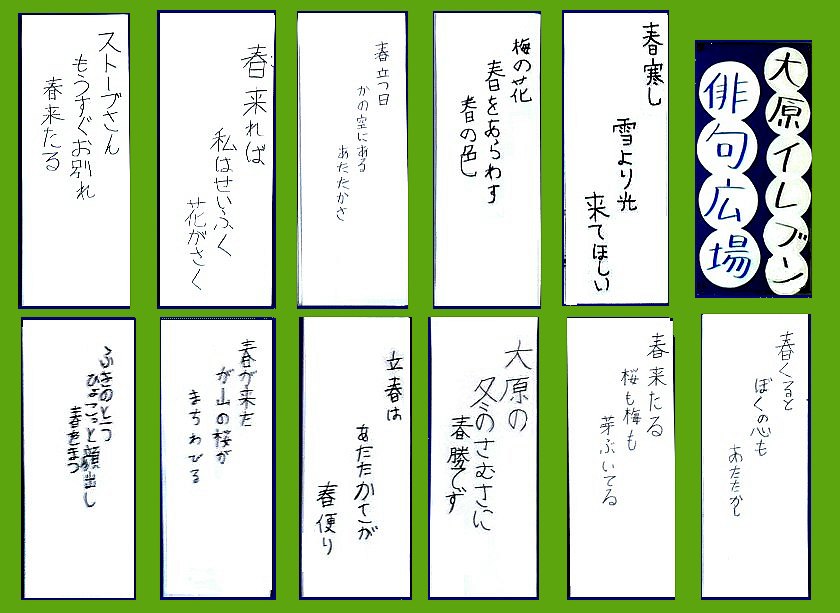 大原イレブン
俳句広場
春寒し
雪より光
来てほしい
梅の花
春をあらわす
春の色
春立つ日
かの空にある
あたたかさ
春来れば
私はせいふく
花がさく
ストーブさん
もうすぐお別れ
春来たる
春くると
ぼくの心も
あたたかし
春来たる
桜も梅も
芽ぶいてる
大原の
冬のさむさに
春勝てず
立春は
あたたかさが
春便り
春が来た
が山の桜が
まちわびる
ふきのとう
ひょこっと顔出し
春をまつ